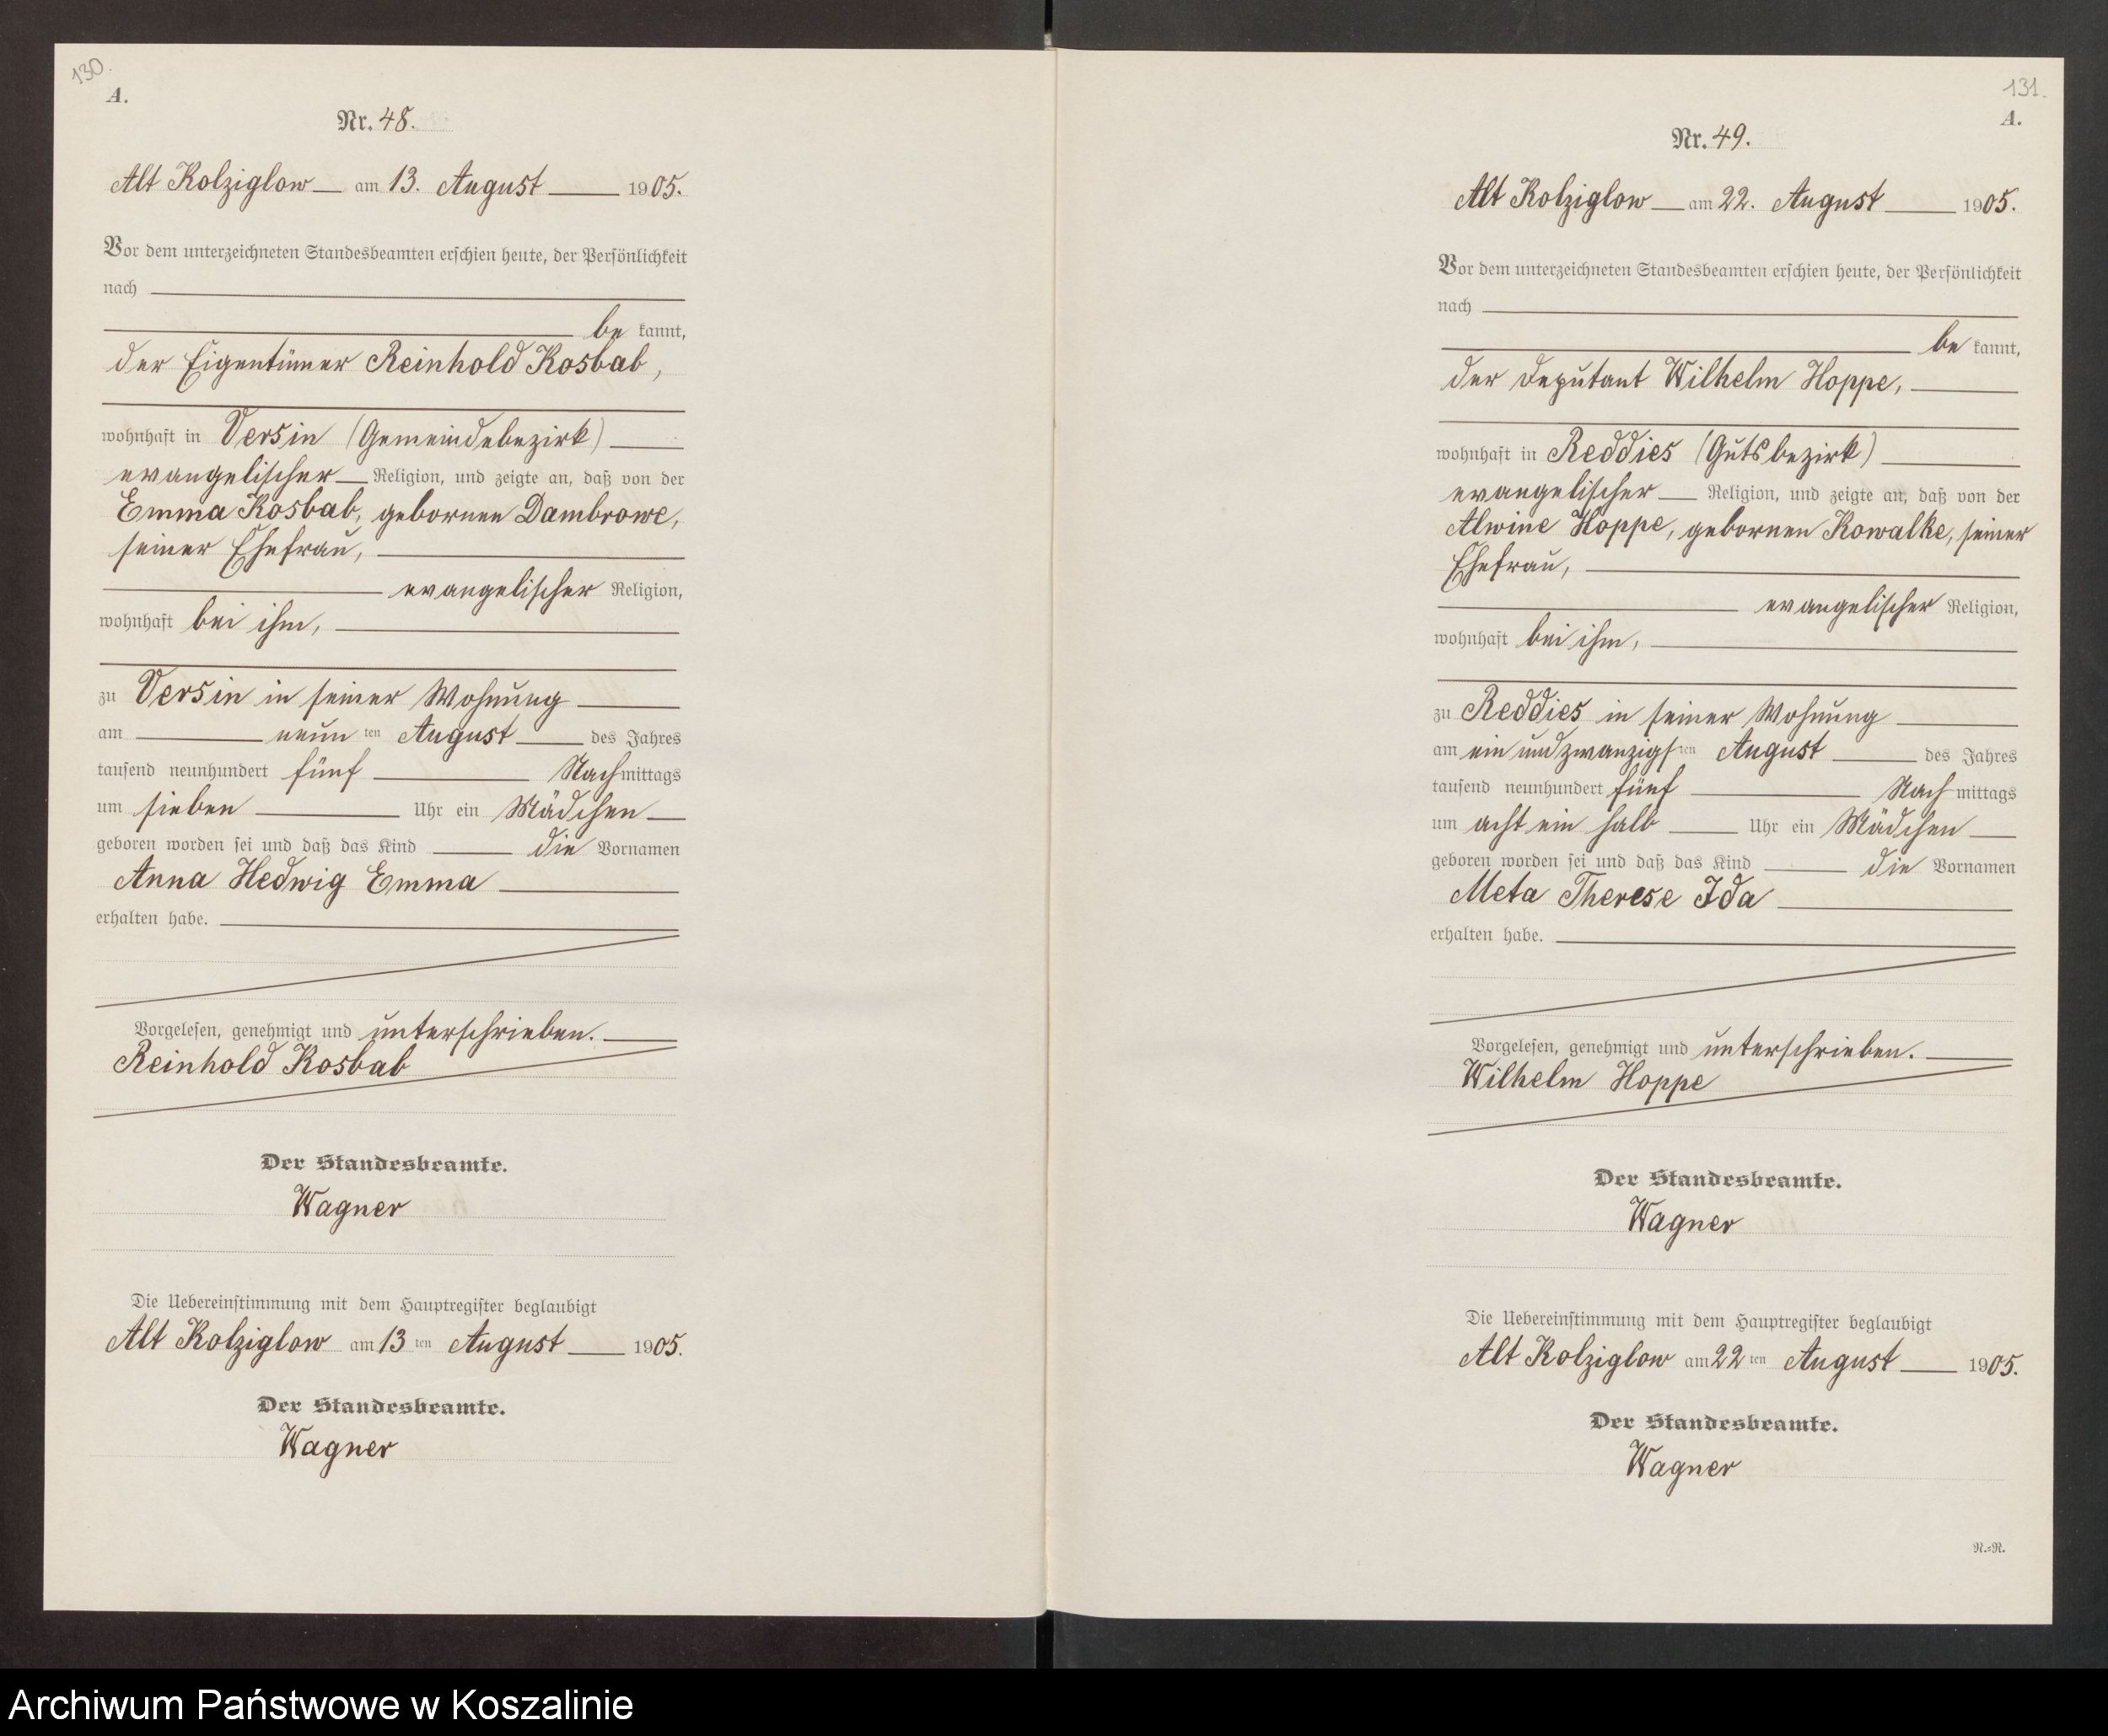 130.
A.
Nr. 48.
Alt Kolziglow am 13. August 1905.
Vor dem unterzeichneten Standesbeamten erschien heute, der Persönlichkeit
nach
be kannt,
der Eigentümer Reinhold Kosbab,
wohnhaft in Versin (Gemeindebezirk)
evangelischer Religion, und zeigte an, daß von der
Emma Kosbab, gebornen Dambrowe,
seiner Ehefrau,
evangelischer Religion,
wohnhaft bei ihm,
zu Versin in seiner Wohnung
am neun ten August des Jahres
tausend neunhundert fünf Nachmittags
um sieben Uhr ein Mädchen
geboren worden sei und daß das Kind die Vornamen
Anna Hedwig Emma
erhalten habe.
Vorgelesen, genehmigt und unterschrieben.
Reinhold Kosbab
Der Standesbeamte.
Wagner
Die Uebereinstimmung mit dem Hauptregister beglaubigt
Alt Kolziglow am 13 ten August 1905.
Der Standesbeamte.
Wagner
131.
A.
Nr. 49.
Alt Kolziglow am 22. August 1905.
Vor dem unterzeichneten Standesbeamten erschien heute, der Persönlichkeit
nach
be kannt,
der Deputant Wilhelm Hoppe,
wohnhaft in Reddies (Gutsbezirk)
evangelischer Religion, und zeigte an, daß von der
Alwine Hoppe, gebornen Kowalke, seiner
Ehefrau,
evangelischer Religion,
wohnhaft bei ihm,
zu Reddies in seiner Wohnung
am ein und zwanzigsten August des Jahres
tausend neunhundert fünf Nachmittags
um acht ein halb Uhr ein Mädchen
geboren worden sei und daß das Kind die Vornamen
Meta Therese Ida
erhalten habe.
Vorgelesen, genehmigt und unterschrieben.
Wilhelm Hoppe
Der Standesbeamte.
Wagner
Die Uebereinstimmung mit dem Hauptregister beglaubigt
Alt Kolziglow am 22 ten August 1905.
Der Standesbeamte.
Wagner
N.=R.
Archiwum Państwowe w Koszalinie